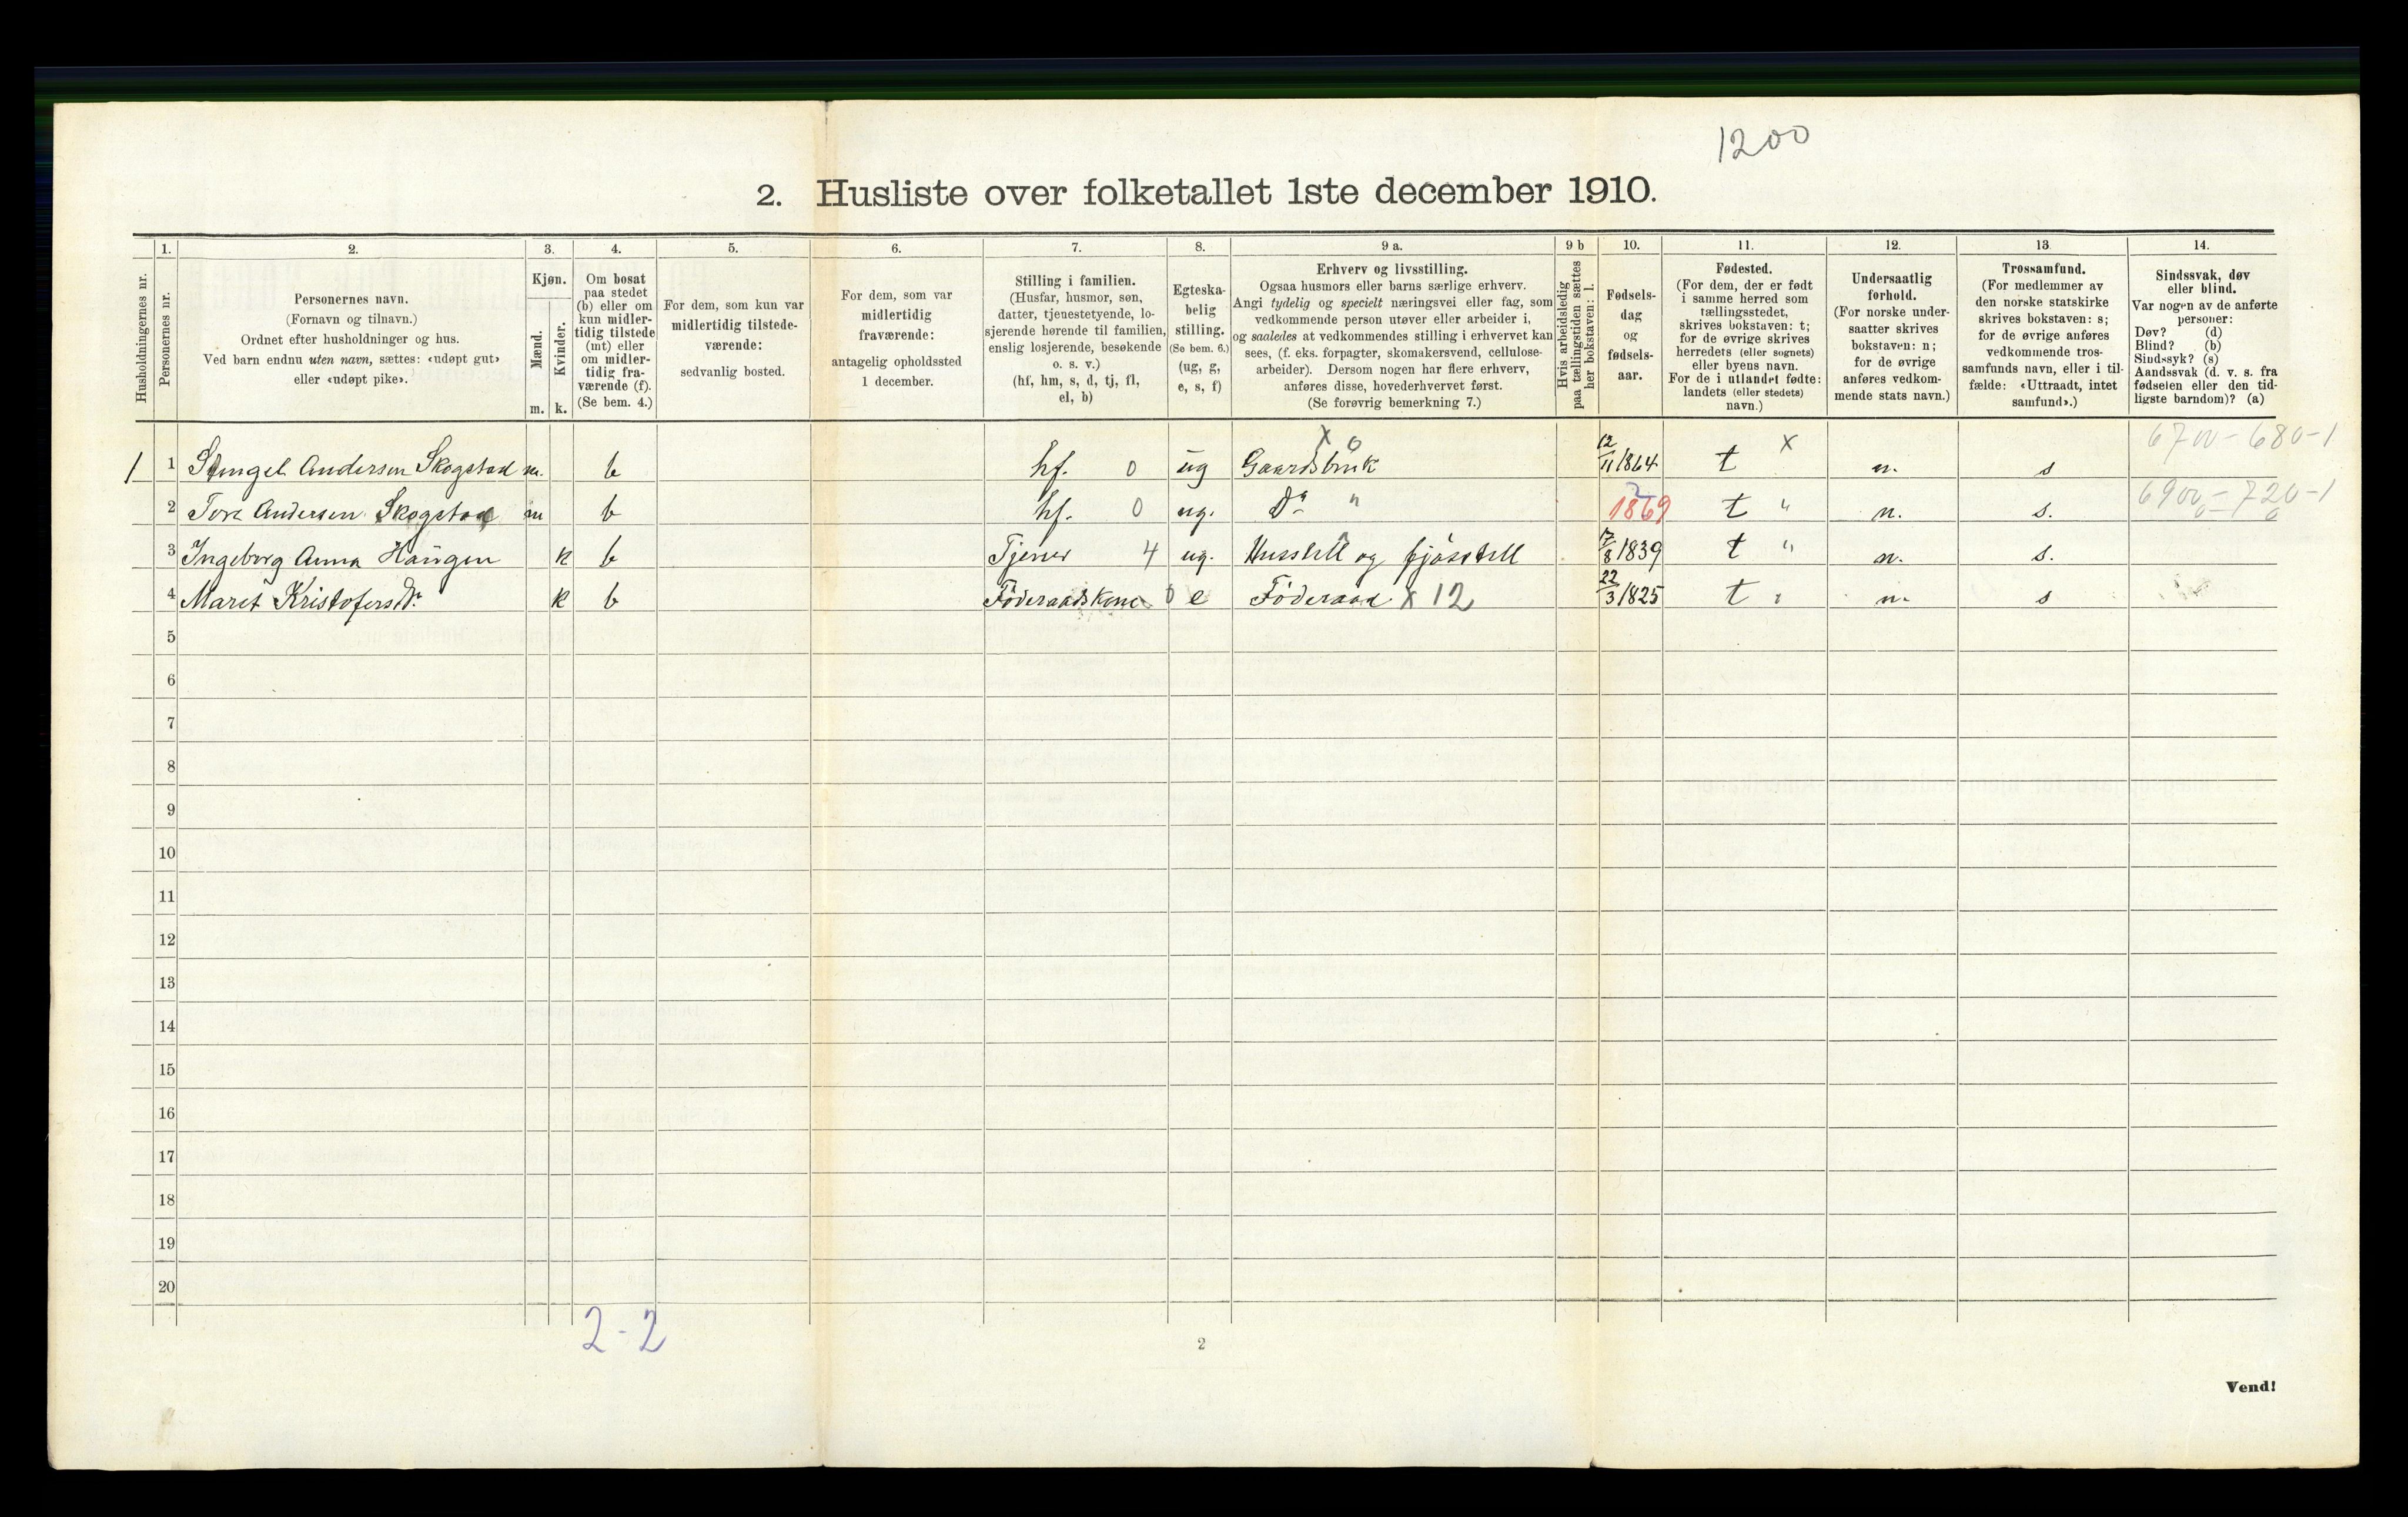 1200
2. Husliste over folketallet 1ste december 1910.
Husholdningernes nr.
1.
Personernes nr.
2.
Personernes navn.
(Fornavn og tilnavn.)
Ordnet efter husholdninger og hus.
Ved barn endnu uten navn, sættes: «udøpt gut»
eller «udøpt pike».
3.
Kjøn.
Mænd.
Kvinder.
m. k.
4.
Om bosat
paa stedet
(b) eller om
kun midler-
tidig tilstede
(mt) eller
om midler-
tidig fra-
værende (f).
(Se bem. 4.)
5.
For dem, som kun var
midlertidig tilstede-
værende:
sedvanlig bosted.
6.
For dem, som var
midlertidig
fraværende:
antagelig opholdssted
1 december.
7.
Stilling i familien.
(Husfar, husmor, søn,
datter, tjenestetyende, lo-
sjerende hørende til familien,
enslig losjerende, besøkende
o. s. v.)
(hf, hm, s, d, tj, fl,
el, b)
8.
Egteska-
belig
stilling.
(Se bem. 6.)
(ug, g,
e, s, f)
9 a.
Erhverv og livsstilling.
Ogsaa husmors eller barns særlige erhverv.
Angi tydelig og specielt næringsvei eller fag, som
vedkommende person utøver eller arbeider i,
og saaledes at vedkommendes stilling i erhvervet kan
sees, (f. eks. forpagter, skomakersvend, cellulose-
arbeider). Dersom nogen har flere erhverv,
anføres disse, hovederhvervet først.
(Se forøvrig bemerkning 7.)
9 b
Hvis arbeidsledig
paa tællingstiden sættes
her bokstaven: l.
10.
Fødsels-
dag
og
fødsels-
aar.
11.
Fødested.
(For dem, der er født
i samme herred som
tællingsstedet,
skrives bokstaven: t;
for de øvrige skrives
herredets (eller sognets)
eller byens navn.
For de i utlandet fødte:
landets (eller stedets)
navn.)
12.
Undersaatlig
forhold.
(For norske under-
saatter skrives
bokstaven: n;
for de øvrige
anføres vedkom-
mende stats navn.)
13
Trossamfund.
(For medlemmer av
den norske statskirke
skrives bokstaven: s;
for de øvrige anføres
vedkommende tros-
samfunds navn, eller i til-
fælde: «Uttraadt, intet
samfund».)
14.
Sindssvak, døv
eller blind.
Var nogen av de anførte
personer:
Døv? (d)
Blind? (b)
Sindssyk? (s)
Aandssvak (d. v. s. fra
fødselen eller den tid-
ligste barndom)? (a)
X o X 6700-680-1
1 1 Andersen Skogstad m. b hf. 0 ug Gaardsbruk 12/11 1864 t n. s
2 Tore Andersen Skogstad m b hf. 0 ug. Do " 1869 t " n. s. 6900-720-1
3 Ingeborg Anna Haugen k b Tjener 4 ug. Husstell og fjösstell 17/8 1839 t " n. s.
4 Marit Kristofersdr. k b Föderaadskone 0 e Föderaad X 12 22/3 1825 t " n. s
5
6
7
8
9
10
11
12
13
14
15
16
17
18
19
20
2-2
2
Vend!